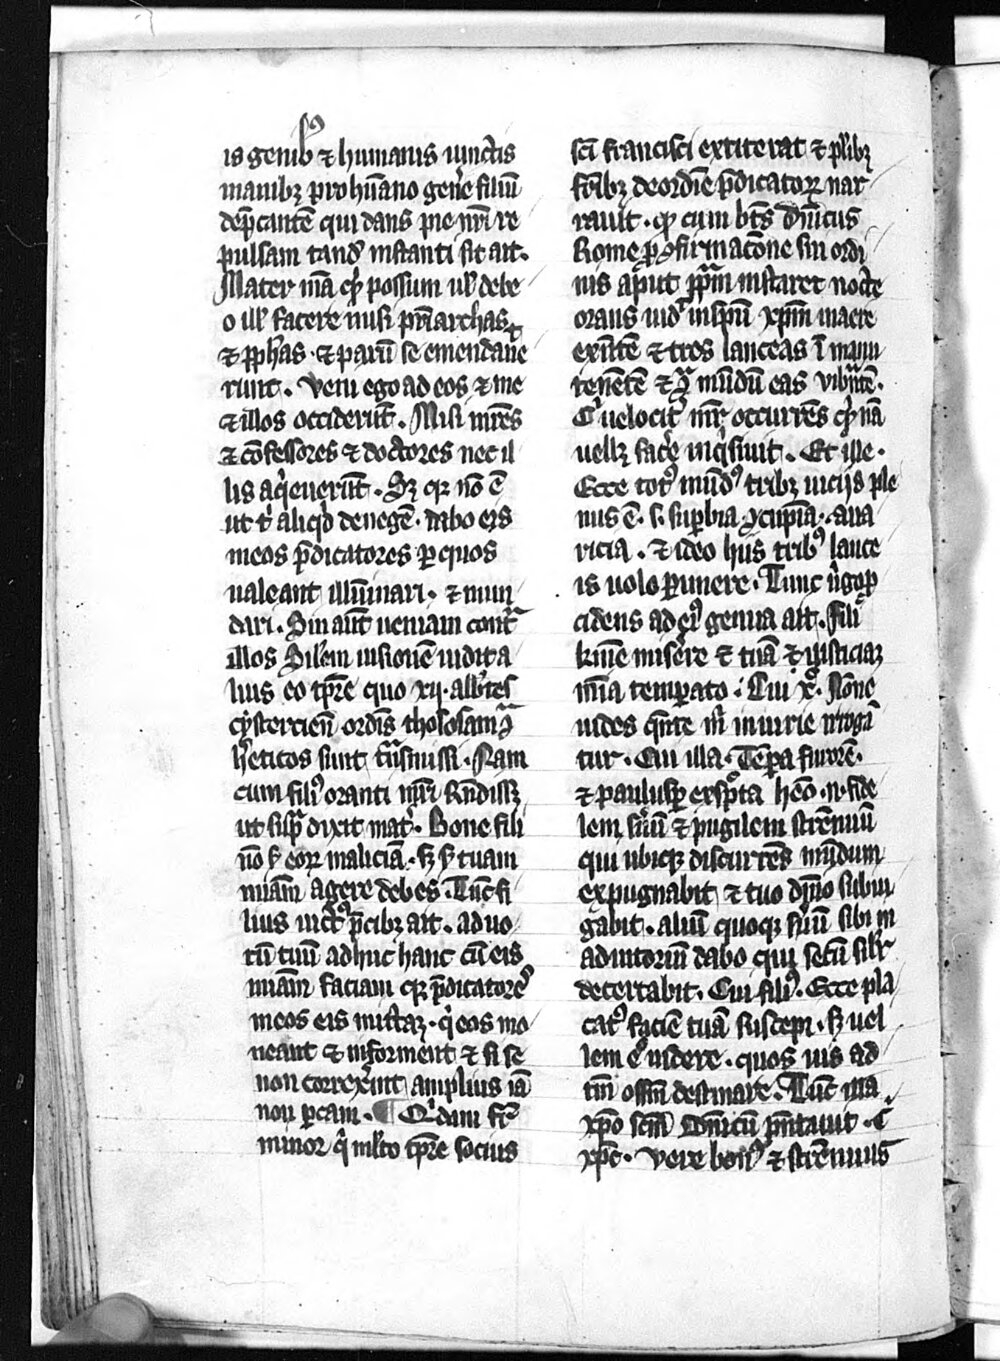 is genibꝰ ⁊ humanis iunctis
manibꝫ pro hūano gen̄e filiū
dep̄cantē qui dans pie mr̄i re
pulsam tandē instanti sic ait.
Mater mā qͥd possum ul̓ debe
o ill̓ facere nisi pr̄iarchas
⁊ ꝓph̄as · ⁊ parū se emendaue
runt. veni ego ad eos ⁊ me
⁊ illos occiderūt. Misi mr̄es
⁊ cōfessores ⁊ doctores nec il
lis aqͥeuerūt. Sꝫ qꝛ nō ē
ut tͥ aliqͥd denegē. dabo eis
meos p̄dicatores ꝑ quos
ualeant illūinari. ⁊ mun
dari. Sin aūt ueniam contͣ
illos Silem uisionē uidit a
lius eo tp̄re quo xij. abb̄tes
cysterciēn ordīs tholosam ↄͣ
h̄eticos sunt tͣsmissi. Nam
cum filiꝰ oranti mr̄i rn̄disset
ut sup̄ dixit matͬ. Bone fili
nō ẜ eoꝝ maliciā. sꝫ ẜ tuam
mīam agere debes. Tūc fi
lius uictꝰ p̄cibꝫ ait. ad uo
tū tuū adhuc hanc cū eis
mīam faciam qꝛ p̄dicatores
meos eis mittaꝫ. qͥ eos mo
neant ⁊ informent ⁊ si se
non correx̄int amplius iā
non ꝑcam. ¶ Qͥdam fr̄
minor qͥ ml̓to tp̄re socius
sc̄i francisci extiterat ⁊ pl̓ibꝫ
fr̄ibꝫ de ordīe p̄dicatoꝝ nar
rauit. qͩ cum bt̄s dn̄icus
Rome ꝓ ↄfirmacōne sui ordi
nis aput pp̄am instaret nocte
orans uidͭ in sp̄u xp̄m in aere
exn̄tē ⁊ tres lanceas ī manu
tenētē ⁊ ↄͣ mūdū eas vibͣntē.
Cͥ uelocitͬ mr̄ occurrēs qͥd nā
uellꝫ fac̄e inqͥsiuit. Et ille.
Ecce totꝰ mūdꝰ tribꝫ uicijs ple
nus ē. s. suꝑbia ↄcupīa. aua
ricia. ⁊ ideo hijs tribꝰ lance
is uolo ꝑimere. Tunc ūgo ꝓ
cidens ad eiꝰ genua ait. Fili
kīme miserere ⁊ tuā ⁊ iusticiaꝫ
mīa temꝑato. Cui xͨ. Nōne
uides qͣnte mͥ iniurie irrogā
tur. Cui illa. Tēꝑa furorē.
⁊ paulisꝑ exspͨta hēo. n. fide
lem s̄uū ⁊ pugilem strēnuū
qui ubiqꝫ discurrēs mūdum
expugnabit ⁊ tuo dn̄io subiu
gabit. aliū quoqꝫ s̄uū sibi in
adiutoriū dabo qui secū sil̓r
decertabit. Cui filiꝰ. Ecce pla
catꝰ faciē tuā suscepi. sꝫ uel
lem gͦ uidere. quos uis ad
tm̄ offm̄ destinare. Tūc ma
xp̄o sc̄m dn̄icū pn̄tauit. ⁊
xp̄c. vere bonꝰ ⁊ strēnuus